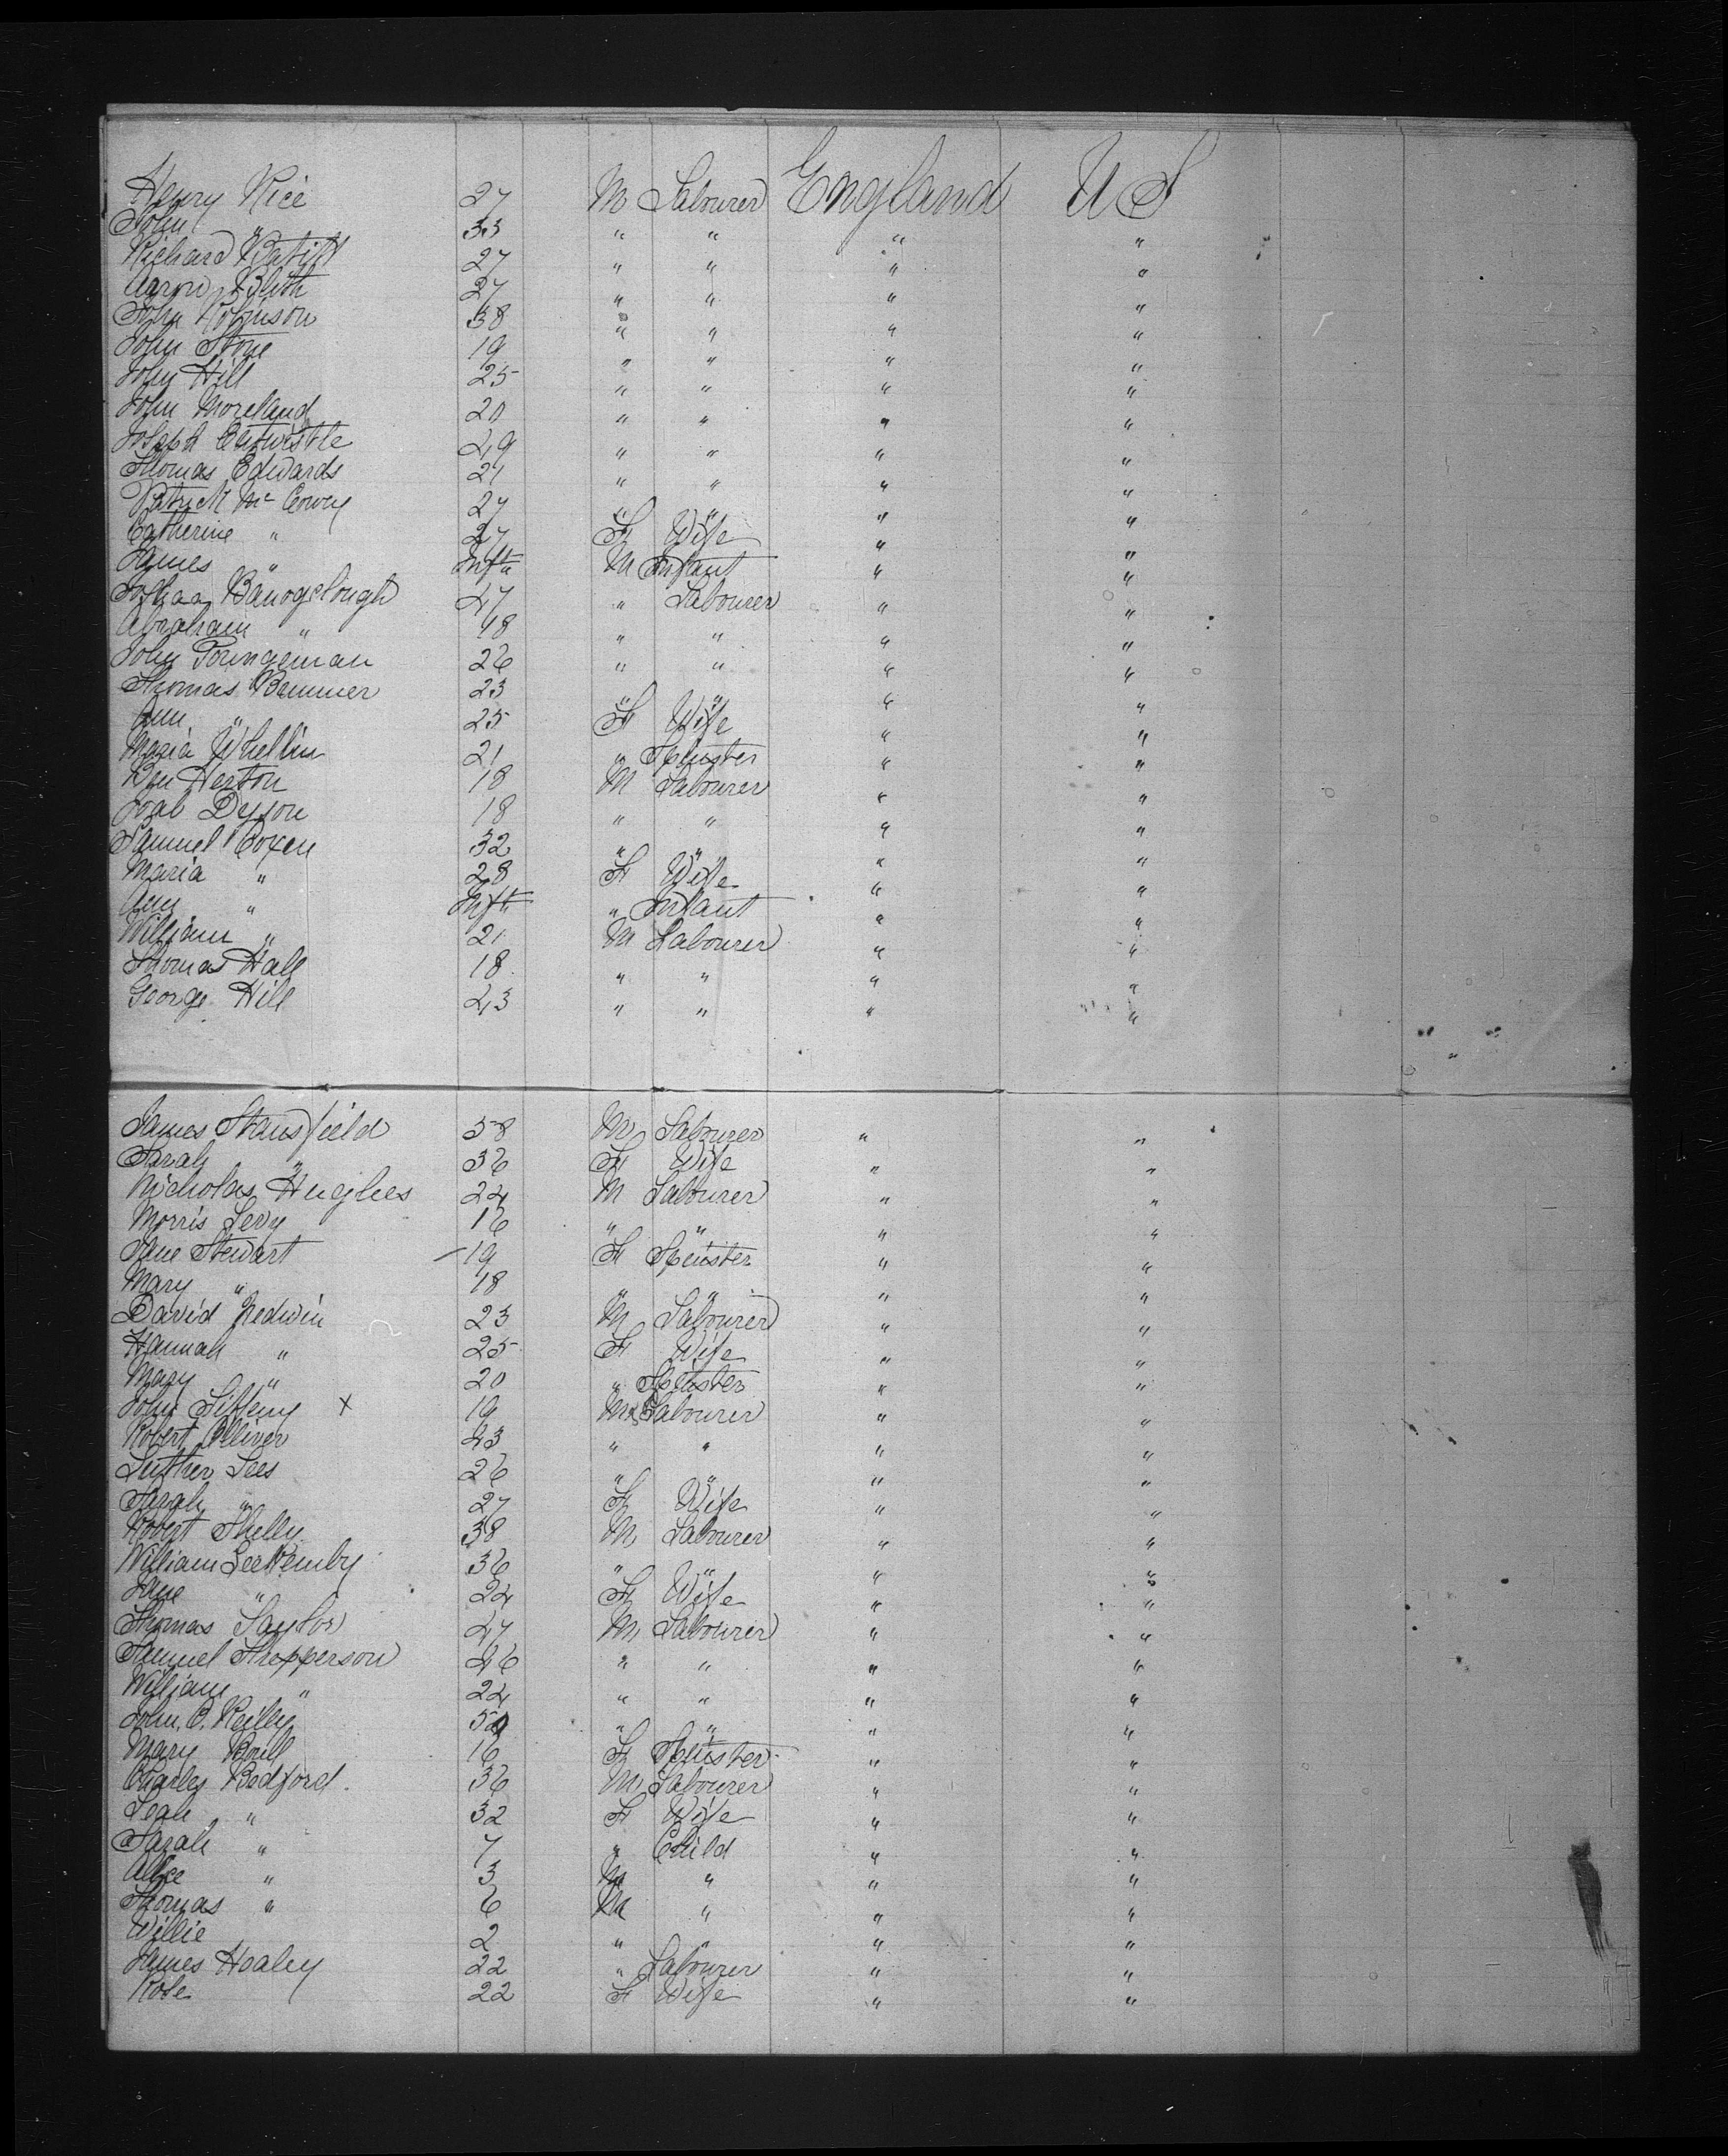 Henry Rice 27 M Labourer England U S
John " 33 " " " "
Richard 27 " " " "
27 " " " "
John Robinson 38 " " " "
John Stone 19 " " " "
John Hill 25 " " " "
John Moreland 20 " " " "
Joseph Entwistle 29 " " " "
Thomas Edwards 21 " " " "
Patrick Mc 27 " " " "
Catherine " 27 F Wife " "
James " Inft M Infant " "
27 " Labourer " "
Abraham " 48 " " " "
John 26 " " " "
Thomas 23 " " " "
Ann " 25 F Wife " "
Maria Whellin 21 " Spinster " "
Ben 18 M Labourer " "
Joab Dyson 18 " " " "
Samuel Coxen 32 " " " "
Maria " 28 F Wife " "
Ann " Inft " Infant " "
William " 21 M Labourer " "
Thomas Hall 18 " " " "
George Hill 23 " " " "
James Stansfield 58 M Labourer " "
Sarah " 36 F Wife " "
Nicholas Hughes 22 M Labourer " "
Morris Levy 16 " " " "
Jane Stewart 19 F Spinster " "
Mary " 18 " " " "
David Nedwin 23 M Labourer " "
Hannah " 25 F Wife " "
Mary " 20 " Spinster " "
John x 19 M Labourer " "
Robert Olliver 23 " " " "
Luther Lees 26 " " " "
Sarah " 27 F Wife " "
Robert Shelly 38 M Labourer " "
William 36 " " " "
Jane " 22 F Wife " "
Thomas Taylor 27 M Labourer " "
Samuel Shepperson 26 " " " "
William " 22 " " " "
John O. Reilly " " " "
Mary 16 F Spinster " "
Charles Bedford 36 M Labourer " "
Leah " 32 F Wife " "
Sarah " 7 " Child " "
Alice " 3 " " "
Thomas " 6 M " " "
Willie 2 " " " "
James Healey 22 " Labourer " "
Rose 22 F Wife " "